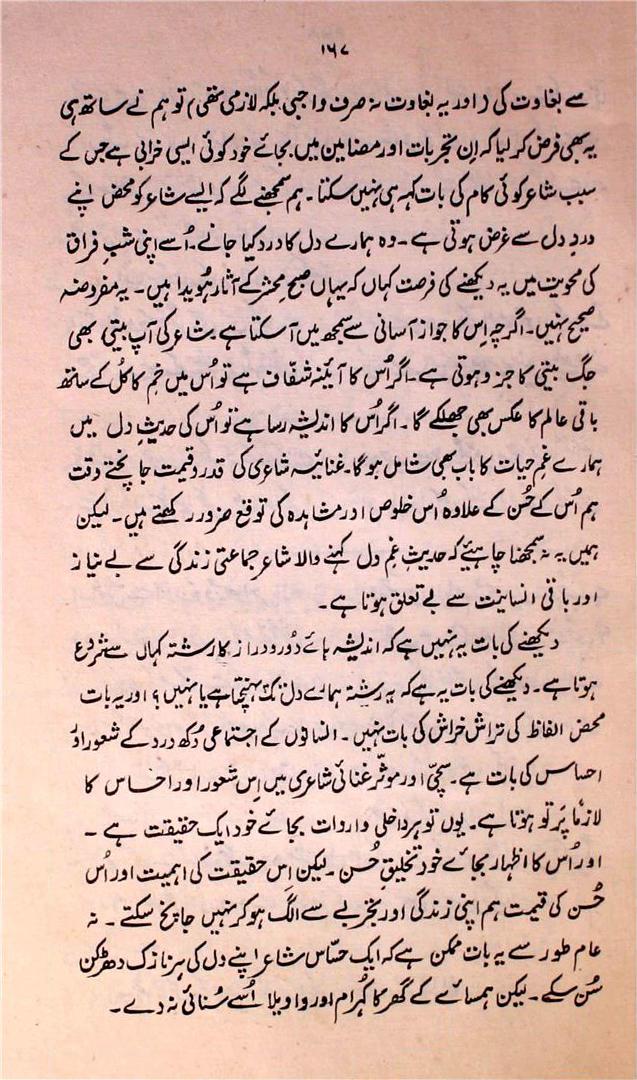 ۱۶۷
سے بغاوت کی (اور یہ بغاوت نہ صرف واجبی بلکہ لازمی تھی) تو ہم نے ساتھ ہی
یہ بھی فرض کر لیا کہ اِن تجربات اور مضامین میں بجائے خود کوئی ایسی خرابی ہے جس کے
سبب شاعر کوئی کام کی بات کہہ ہی نہیں سکتا۔ ہم سمجھنے لگے کہ ایسے شاعر کو محض اپنے
دردِ دل سے غرض ہوتی ہے۔ وہ ہمارے دل کا درد کیا جانے۔ اُسے اپنی شبِ فراق
کی محویت میں یہ دیکھنے کی فرصت کہاں کہ یہاں صبحِ محشر کے آثار ہُویدا ہیں۔ یہ مفروضہ
صحیح نہیں۔ اگرچہ اِس کا جواز آسانی سے سمجھ میں آ سکتا ہے۔ شاعر کی آپ بیتی بھی
جگ بیتی کا جزو ہوتی ہے۔ اگر اُس کا آئینہ شفّاف ہے تو اُس میں خمِ کاکُل کے ساتھ
باقی عالم کا عکس بھی جھلکے گا۔ اگر اُس کا اندیشہ رسا ہے تو اُس کی حدیثِ دل میں
ہمارے غمِ حیات کا باب بھی شامل ہوگا۔ غنائیہ شاعری کی قدر و قیمت جانچتے وقت
ہم اُس کے حُسن کے علاوہ اُس خلوص اور مشاہدہ کی توقع ضرور رکھتے ہیں۔ لیکن
ہمیں یہ نہ سمجھنا چاہیئے کہ حدیثِ غمِ دل کہنے والا شاعر جماعتی زندگی سے بے نیاز
اور باقی انسانیت سے بے تعلق ہوتا ہے۔
دیکھنے کی بات یہ نہیں ہے کہ اندیشہ ہائے دُور و دراز کا رشتہ کہاں سے شروع
ہوتا ہے۔ دیکھنے کی بات یہ ہے کہ یہ رشتہ ہمارے دل تک پہنچتا ہے یا نہیں؟ اور یہ بات
محض الفاظ کی تراش خراش کی بات نہیں۔ انسانوں کے اجتماعی دُکھ درد کے شعور اور
احساس کی بات ہے۔ سچّی اور موثّر غنائی شاعری میں اِس شعور اور احساس کا
لازماً پَرتو ہوتا ہے۔ یوں تو ہر داخلی واردات بجائے خود ایک حقیقت ہے۔
اور اُس کا اظہار بجائے خود تخلیقِ حُسن۔ لیکن اِس حقیقت کی اہمیت اور اُس
حُسن کی قیمت ہم اپنی زندگی اور تجربے سے الگ ہو کر نہیں جانچ سکتے۔ نہ
عام طور سے یہ بات ممکن ہے کہ ایک حسّاس شاعر اپنے دل کی ہر نازک دھڑکن
سُن سکے۔ لیکن ہمسائے کے گھر کا کُہرام اور واویلا اُسے سُنائی نہ دے۔